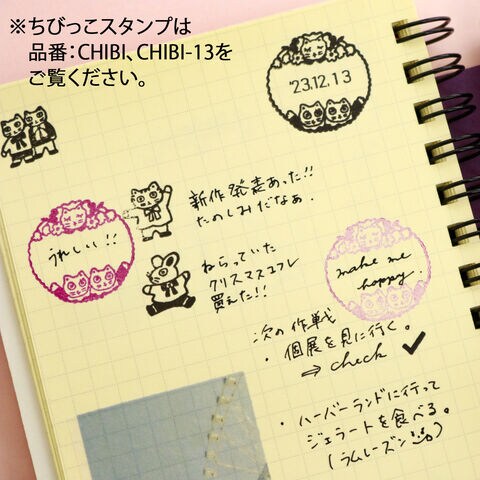 ※ちびっこスタンプは
品番：CHIBI、CHIBI-13を
ご覧ください。
'23.12.13
新作発表あった!!
たのしみだなぁ.
うれしい!!
ねらっていた
クリスマスコフレ
買えた!!
make me
happy.
次の作戦
・個展を見に行く。
⇒ check ✓
・ハーバーランドに行って
ジェラートを食べる。
(ラムレーズン)